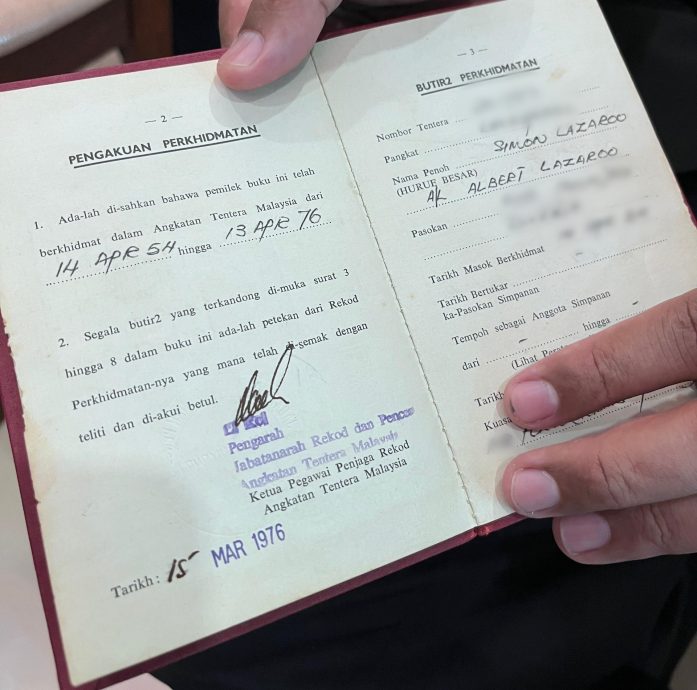 — 2 —
PENGAKUAN PERKHIDMATAN
1. Ada-lah di-sahkan bahawa pemilek buku ini telah
berkhidmat dalam Angkatan Tentera Malaysia dari
14 APR 54 hingga 13 APR 76
2. Segala butir2 yang terkandong di-muka surat 3
hingga 8 dalam buku ini ada-lah petekan dari Rekod
Perkhidmatan-nya yang mana telah di-semak dengan
teliti dan di-akui betul.
Lt Kol
Pengarah
Jabatanarah Rekod dan Pencen
Angkatan Tentera Malaysia
Ketua Pegawai Penjaga Rekod
Angkatan Tentera Malaysia
Tarikh: 15 MAR 1976
— 3 —
BUTIR2 PERKHIDMATAN
Nombor Tentera
Pangkat
Nama Penoh SIMON LAZAROO
(HURUF BESAR)
AK ALBERT LAZAROO
Pasokan
Tarikh Masok Berkhidmat
Tarikh Bertukar
ka-Pasokan Simpanan
Tempoh sebagai Anggota Simpanan
dari - hingga -
(Lihat
Tarikh
Kuasa